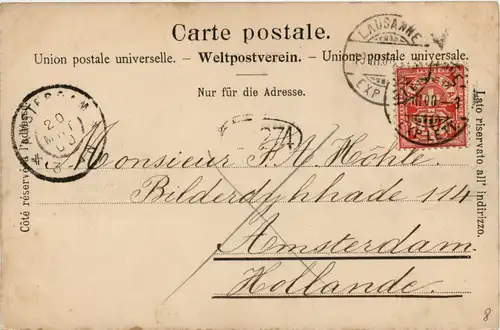 Carte postale.
Union postale universelle. – Weltpostverein. – Unione postale universale.
Nur für die Adresse.
Côté réservé à l'adresse.
Lato riservato all' indirizzo.
LAUSANNE
EXP
AMSTERDAM
20
274
Monsieur F. A. Höhle.
Bilderdijkkade 114
Amsterdam.
Hollande.
8